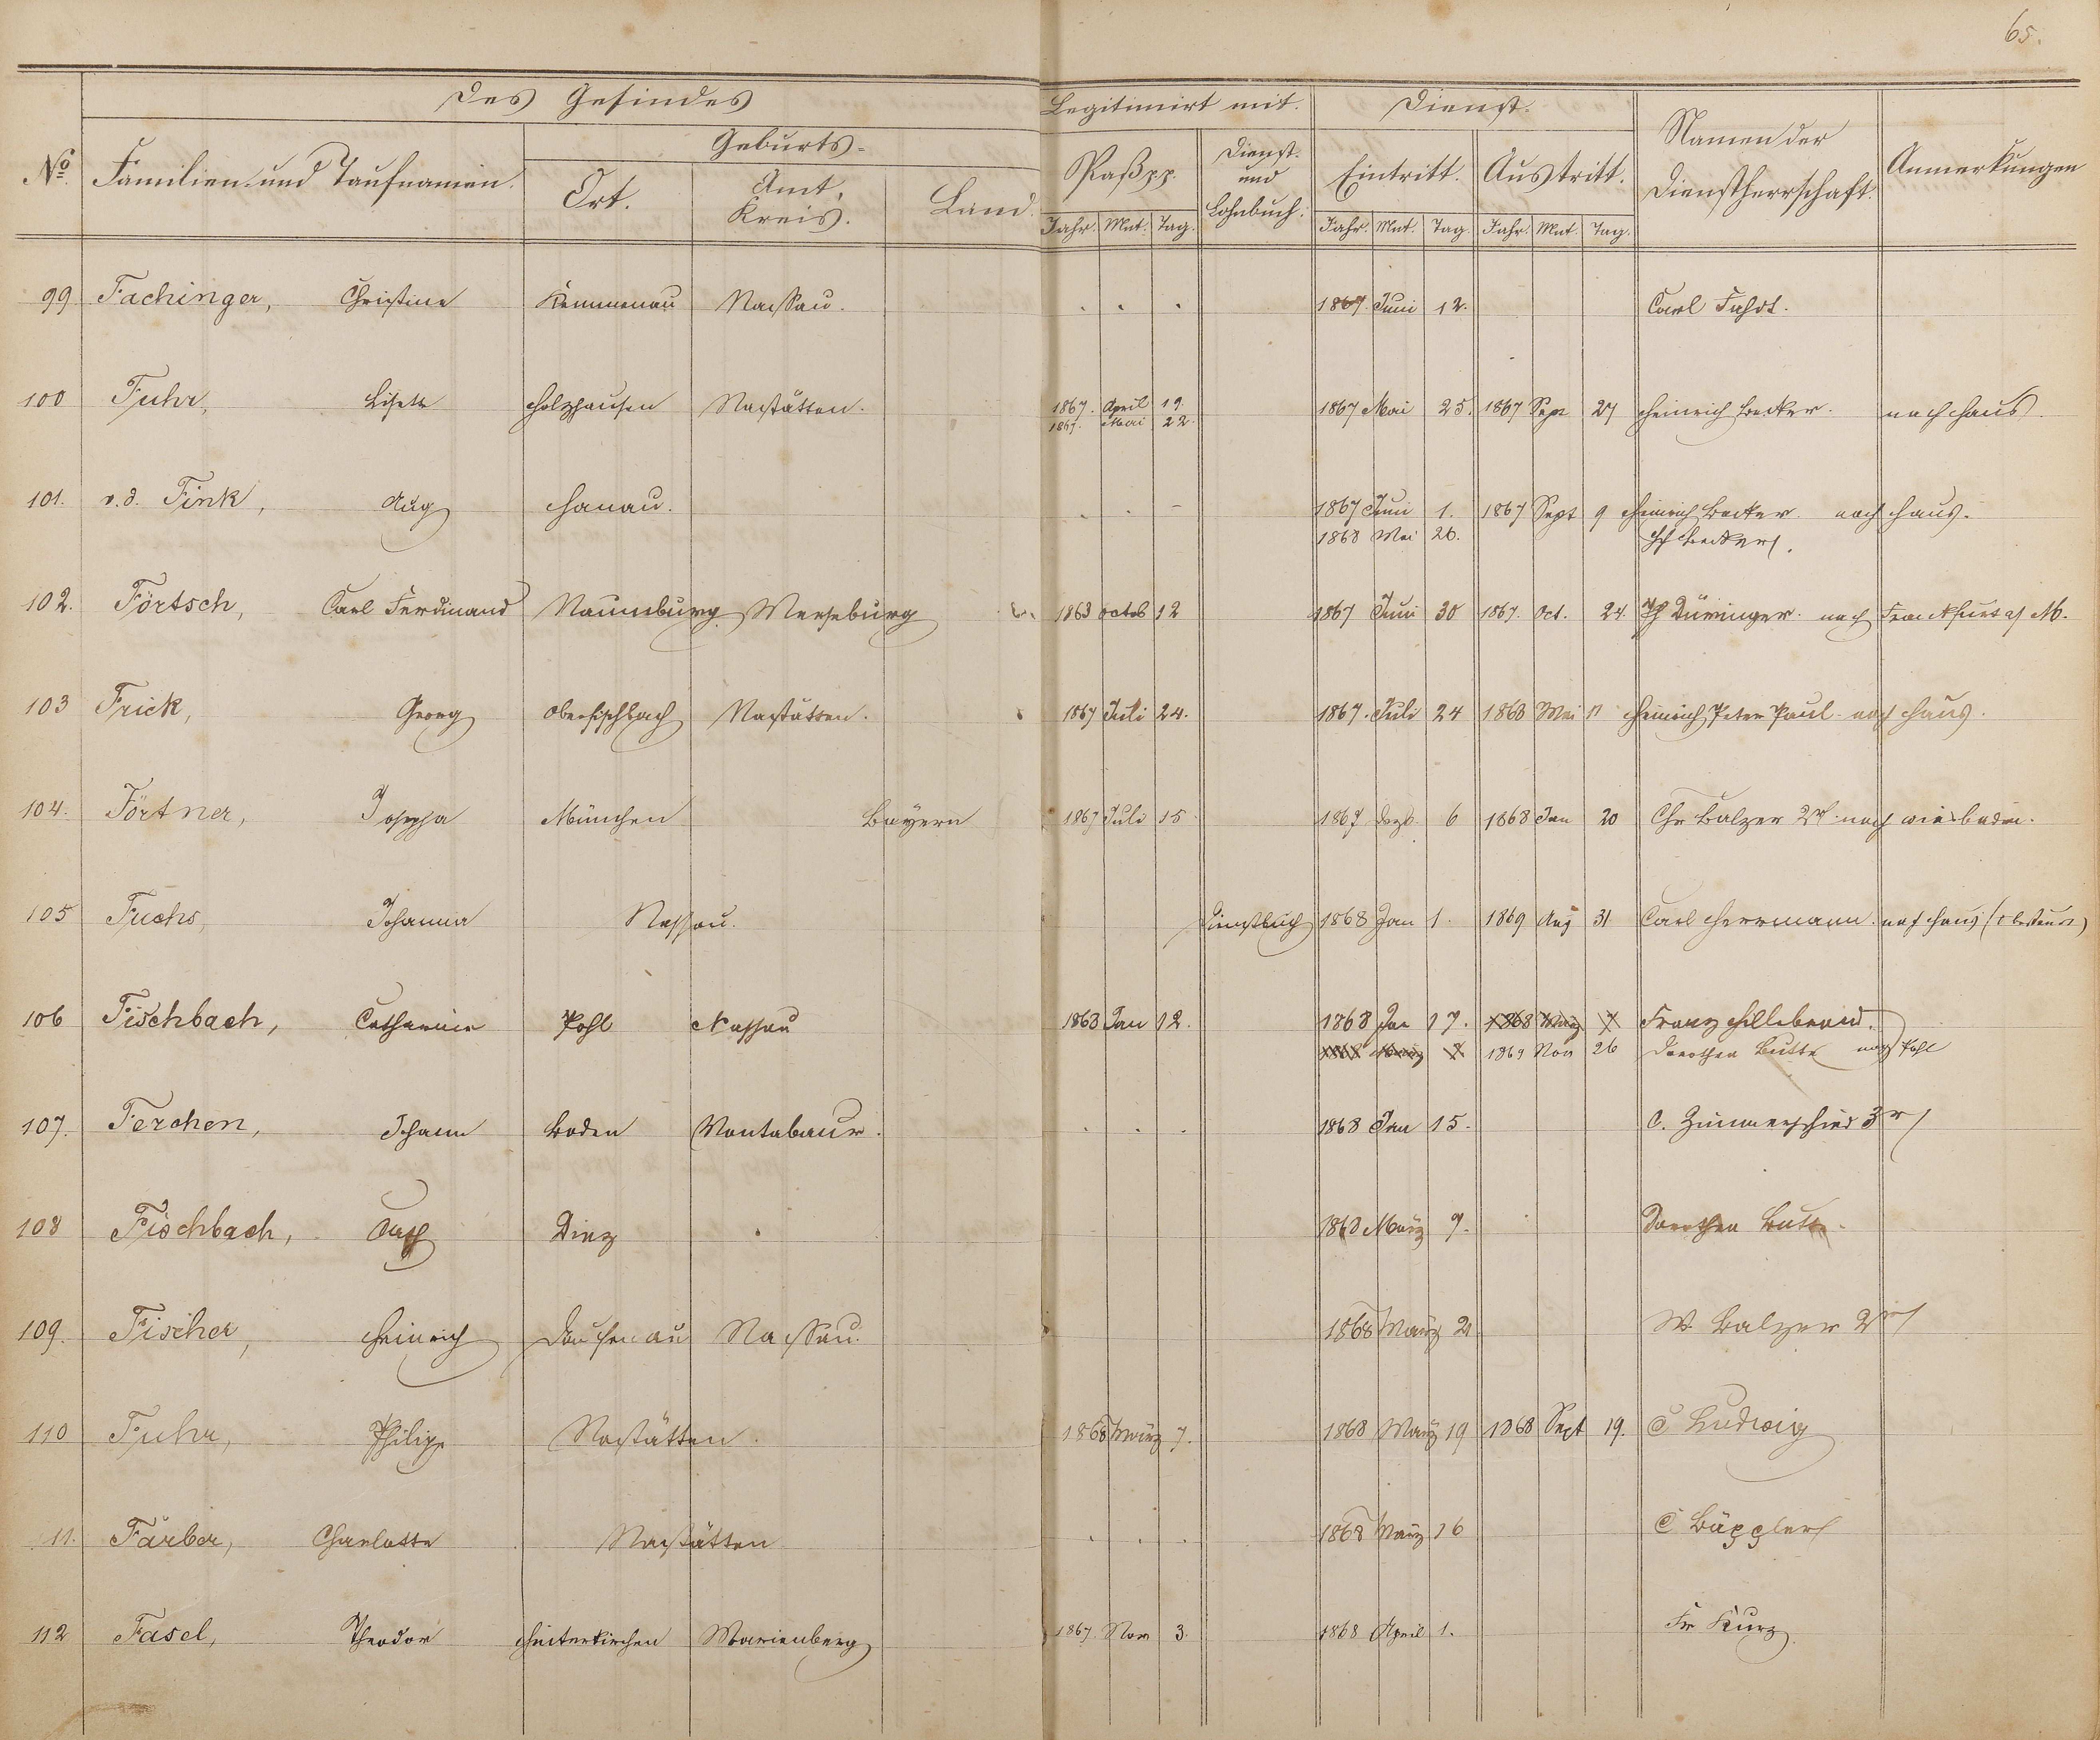 65.
Des Gesindes
Legitimirt mit.
Dienst.
No.
Familien- und Taufnamen.
Geburts-
Ort.
Amt, Kreis.
Land.
Paß pp.
Dienst- und Lohnbuch.
Eintritt.
Austritt.
Namen der Dienstherrschaft.
Anmerkungen
Jahr. Mnt. Tag. Jahr. Mnt. Tag. Jahr. Mnt. Tag.
99 Fachinger, Christine Kemmenau Nassau. 1867 Juni 12. Carl
100 Fuhr, Lisette Holzhausen Nastätten. 1867. April 19. 1867 Mai 25. 1867 Sept 27 Heinrich Becker. nach Haus.
1867. Mai 22.
101. v. d. Fink, Aug Hanau. 1867 Juni 1. 1867 Sept 9 Heinrich Becker. nach Haus.
1868 Mai 26. Becker.
102. Förtsch, Carl Ferdinand Naumburg Merseburg 1863 Octob 12 1867 Juni 30 1867. Oct. 24. Düringer. nach Frankfurt a/ M.
103 Frick, Georg Oberfischbach Nastätten. 1867 Juli 24. 1867. Juli 24 1868 Mai 11 Heinrich Peter Paul nach Haus.
104. Förtner, Josepha München Bayern 1867 Juli 15. 1867 Dezb. 6 1868 Jan 20 Chr Balzer 2r nach Wiesbaden.
105 Fuchs, Johanna Nassau. Dienstbuch 1868 Jan 1. 1869 Aug 31 Carl Herrmann. nach Haus
106 Fischbach, Catharine Pohl Nassau 1868 Jan 12. 1868 Jan 17. 1868 März 7 Franz Hillebrand.
1868 März 7 1869 Nov 26 Dorothea Butte nach Pohl
107. Ferchen, Johann Boden Montabaur. 1868 Jan 15. C. Zimmerschied 3r
108 Fischbach, Diez 1868 März 7. Dorothea Butte.
109. Fischer, Heinrich Dausenau Nassau. 1868 März 2 W. Balzer 2r
110 Fuhr, Philipp Nastätten. 1868 März 7. 1868 März 19 1868 Sept 19. C Ludwig
111. Färber, Charlotte Nastätten 1868 März 16 C Bäppler
112 Fasel, Theodor Hinterkirchen Marienberg 1867. Nov 3. 1868 April 1. Fr Kurz.